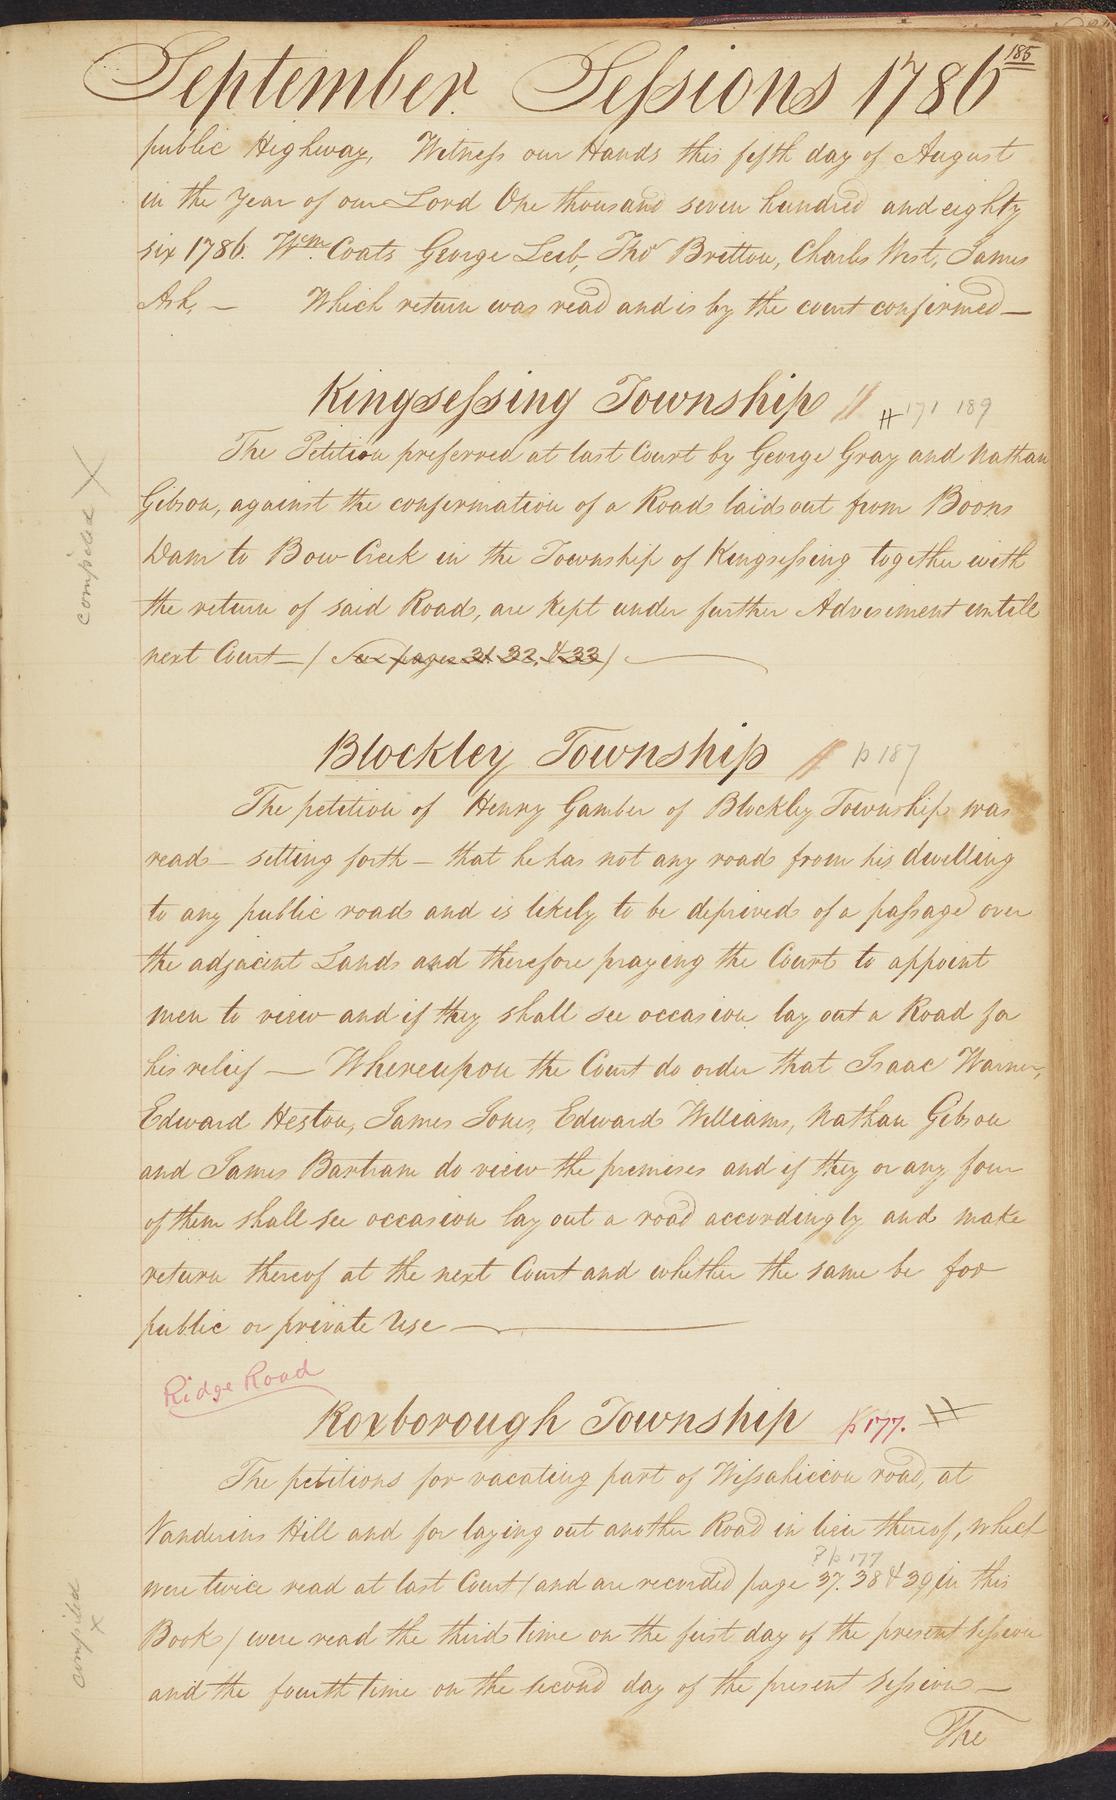 September Sessions 1786
185
public Highway, Witness our Hands this fifth day of August
in the Year of our Lord One thousand seven hundred and eighty
six 1786. Wm. Coats George Leib, Tho' Britton, Charles West, James
Ash, — Which return was read and is by the court confirmed —
Kingsessing Township // # 171 189
The Petition preferred at last Court by George Gray and Nathan
Gibson, against the confirmation of a Road laid out from Boons
Dam to Bow Creek in the Township of Kingsessing together with
the return of said Road, are kept under further Advisement untill
next Court — ( See pages 31. 32. & 33 )
compiled X
Blockley Township // p 187
The petition of Henry Gamber of Blockley Township was
read — setting forth — that he has not any road from his dwelling
to any public road and is likely to be deprived of a passage over
the adjacent Lands and therefore praying the Court to appoint
men to view and if they shall see occasion lay out a Road for
his relief — Whereupon the Court do order that Isaac Warner,
Edward Heston, James Jones, Edward Williams, Nathan Gibson
and James Bartram do view the premises and if they or any four
of them shall see occasion lay out a road accordingly and make
return thereof at the next Court and whether the same be for
public or private Use —
Ridge Road
Roxborough Township p 177. #
The petitions for vacating part of Wissahiccon road, at
Vanderins Hill and for laying out another Road in lieu thereof, which
? p 177
were twice read at last Court ( and are recorded page 37. 38 & 39, in this
Book ) were read the third time on the first day of the present session
and the fourth time on the second day of the present Session —
compiled X
The